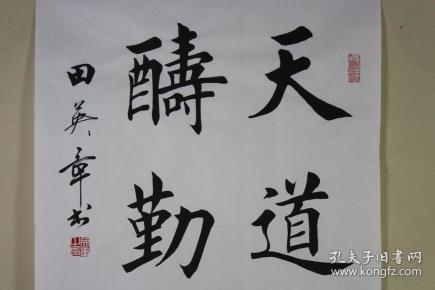 天道
醻勤
田英章书
孔夫子旧书网
www.kongfz.com